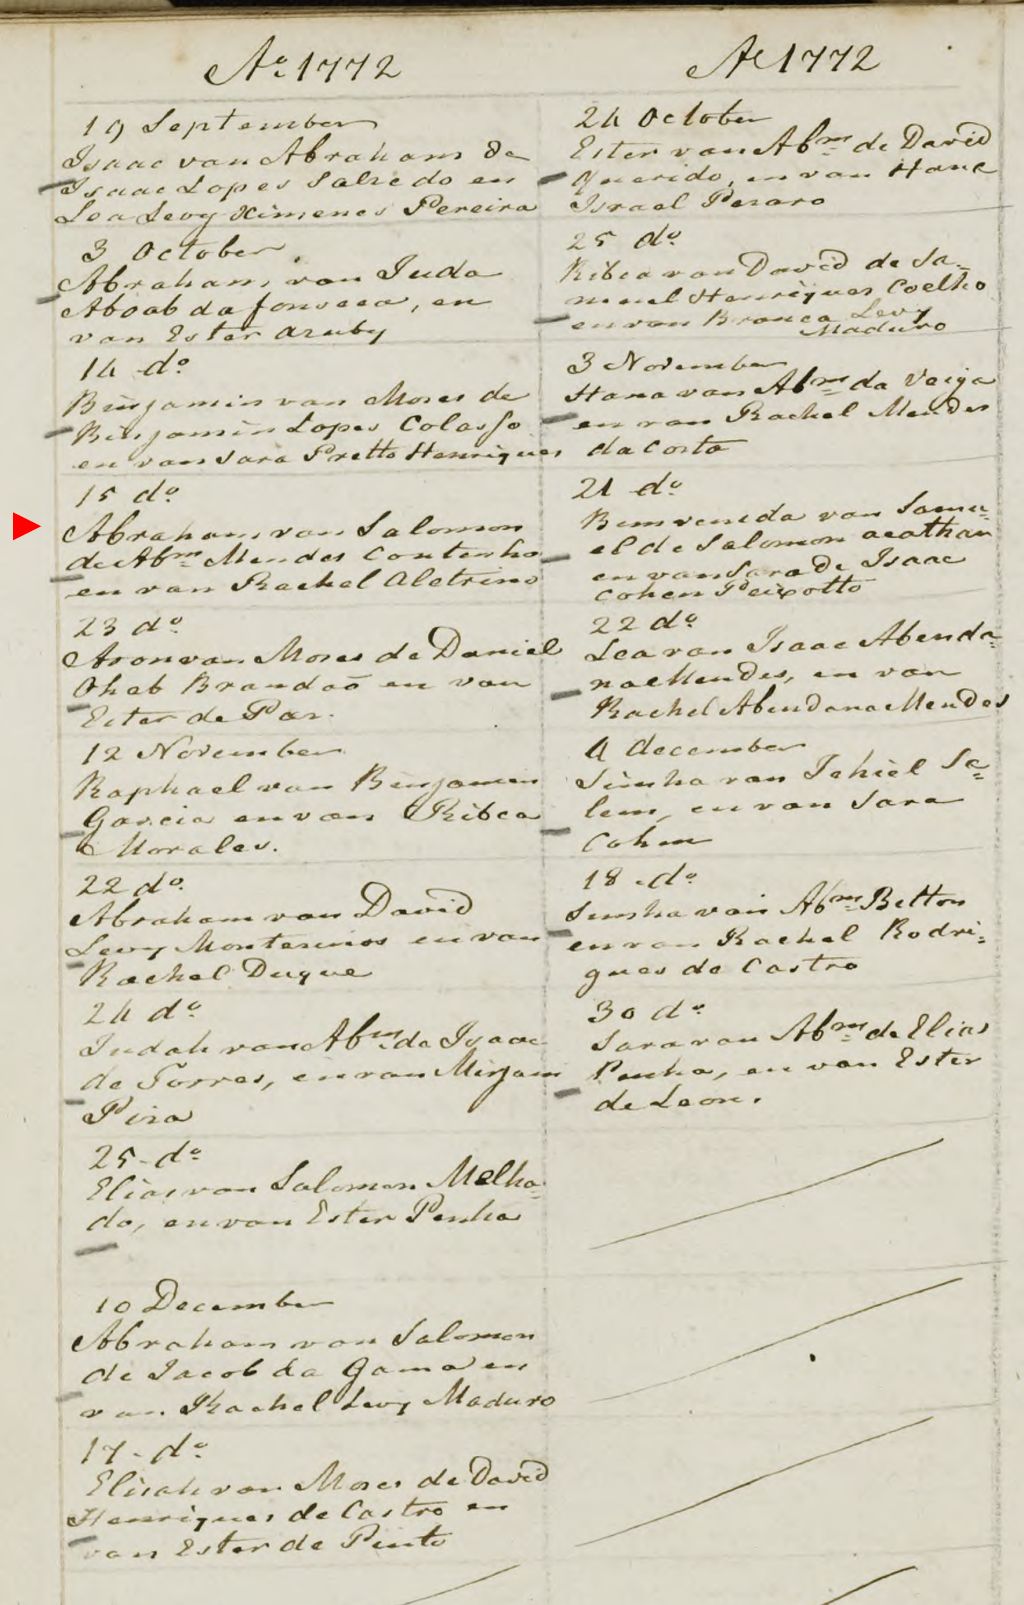 Ao. 1772
19 September
Isaac van Abraham de
Isaac Lopes Salzedo en
Lea Levy Ximenes Pereira
3 October
Abraham, van Juda
Aboab da fonseca, en
van Ester Aruby
14 do.
Binjamin van Moses de
Binjamin Lopes Colasso
en van Sara Pretto Henriques
15 do.
Abraham van Salomon
de Abm. Mendes Coutinho
en van Rachel Aletrino
23 do.
Aron van Moses de Daniel
Oheb Brandaõ en van
Ester de Paz.
12 November
Raphael van Binjamin
Garcia en van Ribca
Morales.
22 do.
Abraham van David
Levy Montesinos en van
Rachel Duque
24 do.
Judah van Abm. de Isaac
de Torres, en van Mirjam
Piza
25 - do.
Elias van Salomon Melha-
do, en van Ester Penha
10 December
Abraham van Salomon
de Jacob da Gama en
van Rachel Levy Maduro
17 - do.
Elisah van Moses de David
Henriques de Castro en
van Ester de Pinto
Ao 1772
24 October
Ester van Abm. de David
Querido, en van Hana
Israel Pesaro
25 do.
Ribca van David de Sa-
muel Henriques Coelho
en van Branca Levy
Maduro
3 November
Hana van Abm. da Veiga
en van Rachel Mendes
da Costa
21 do.
Bemvenida van Samu-
el de Salomon acathan
en van Sara de Isaac
Cohen Peixotto
22 do.
Lea van Isaac Abenda-
na Mendes, en van
Rachel Abendana Mendes
4 december
Simha van Jehiel Se-
lem, en van Sara
Cohen
18 . do.
Simha van Abm. Belton
en van Rachel Rodri-
gues de Castro
30 do.
Sara van Abm. de Elias
Penha, en van Ester
de Leon.